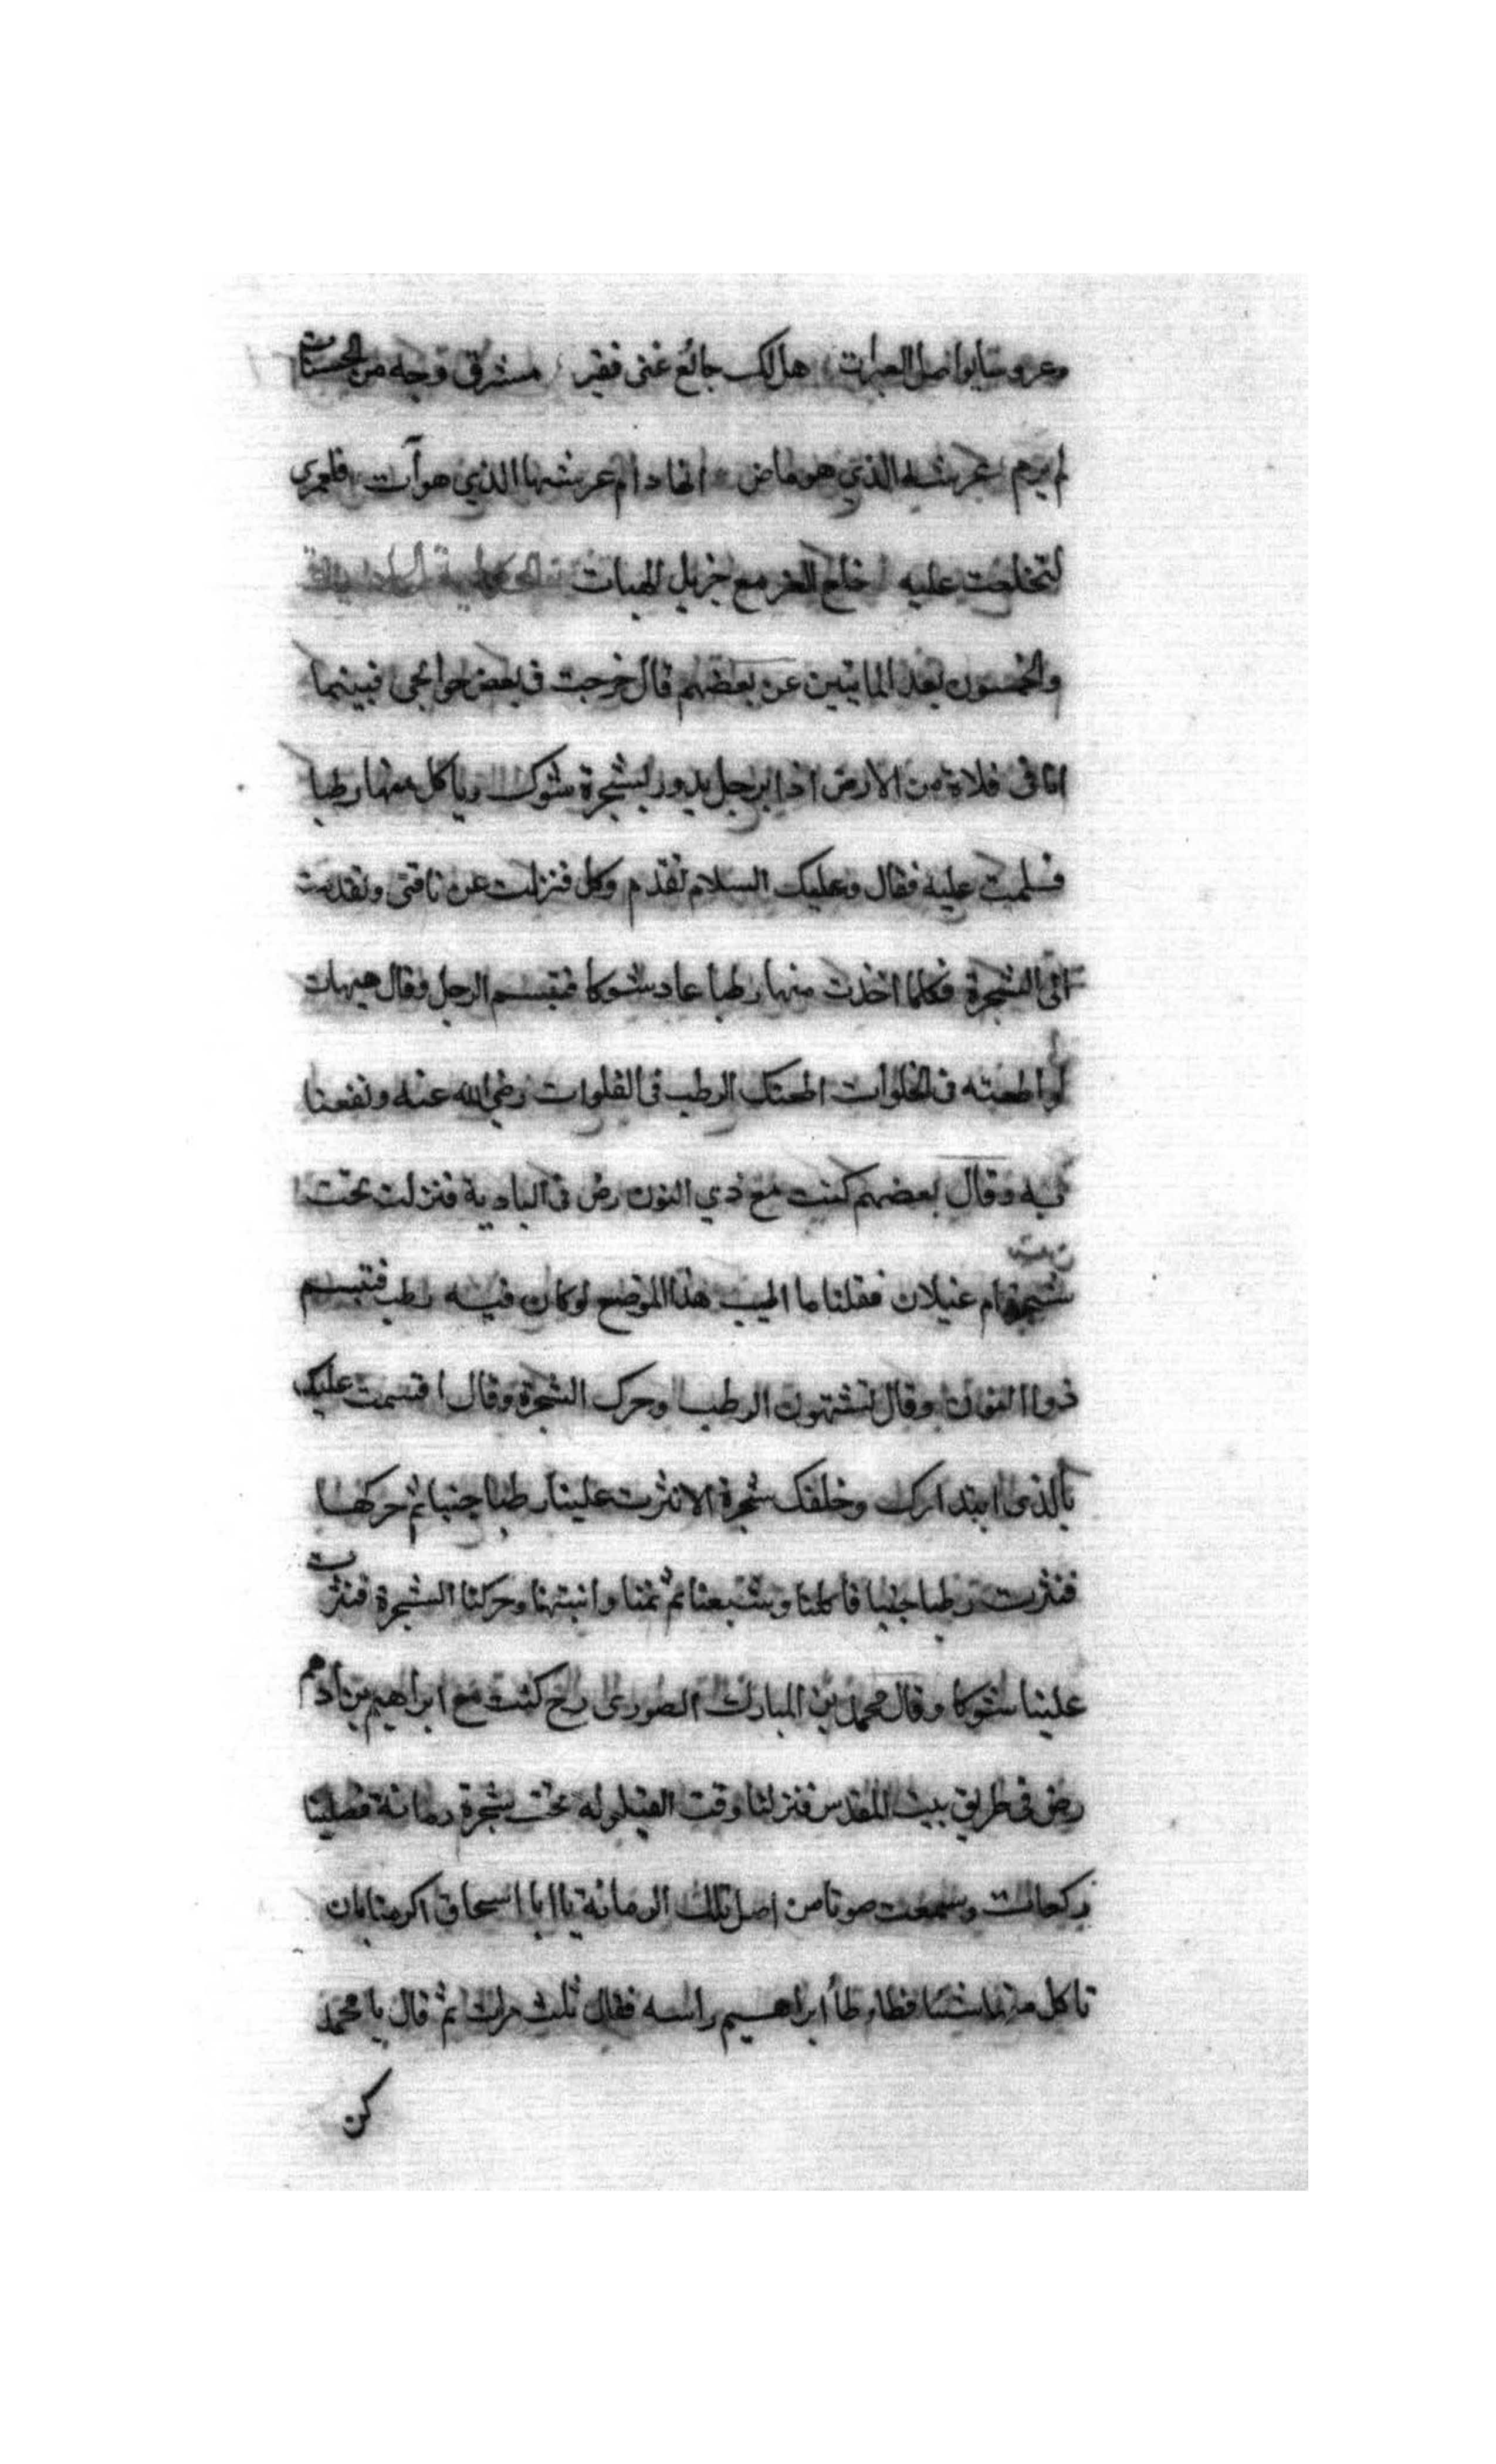 هل لك جائع غنى فقير مشرق وجهه من الحسنات
لم يرم عرشه الذي هو ماض انما دام عرشها الذي هوآت فلعمرى
لتخلعت عليه خلع العز مع جزيل الهبات
والخمسون بعد المايتين عن بعضهم قال خرجت فى بعض حوائجى فبينما
انا فى فلاة من الارض اذا برجل يدور بشجرة شوك وياكل منها رطبا
فسلمت عليه فقال وعليك السلام تقدم وكل فنزلت عن ناقتى وتقدمت
الى الشجرة فكلما اخذت منها رطبا عاد شوكا فتبسم الرجل وقال هيهات
لو اطعته فى الخلوات اطعمتك الرطب فى الفلوات رضي الله عنه ونفعنا
به وقال بعضهم كنت مع ذي النون رض فى البادية فنزلت تحت
شجرة ام غيلان فقلنا ما اطيب هذا الموضع لو كان فيه رطب فتبسم
ذوا النون وقال تشتهون الرطب وحرك الشجرة وقال اقسمت عليك
بالذى ابتداك وخلقك شجرة الا نثرت علينا رطبا جنيا ثم حركها
فنثرت رطبا جنيا فاكلنا وشبعنا ثم نمنا وانبتهنا وحركنا الشجرة فنثرت
علينا شوكا وقال محمد بن المبارك الصورى رح كنت مع ابراهيم بن ادهم
رض فى طريق بيت المقدس فنزلنا وقت القيلوله تحت شجرة رمانة فصلينا
ركعات وسمعت صوتا من اصل تلك الرمانة يا ابا اسحاق اكرمنا بان
تاكل منا شيئا فطاطأ ابراهيم راسه فقال ثلث مرات ثم قال يا محمد
كن